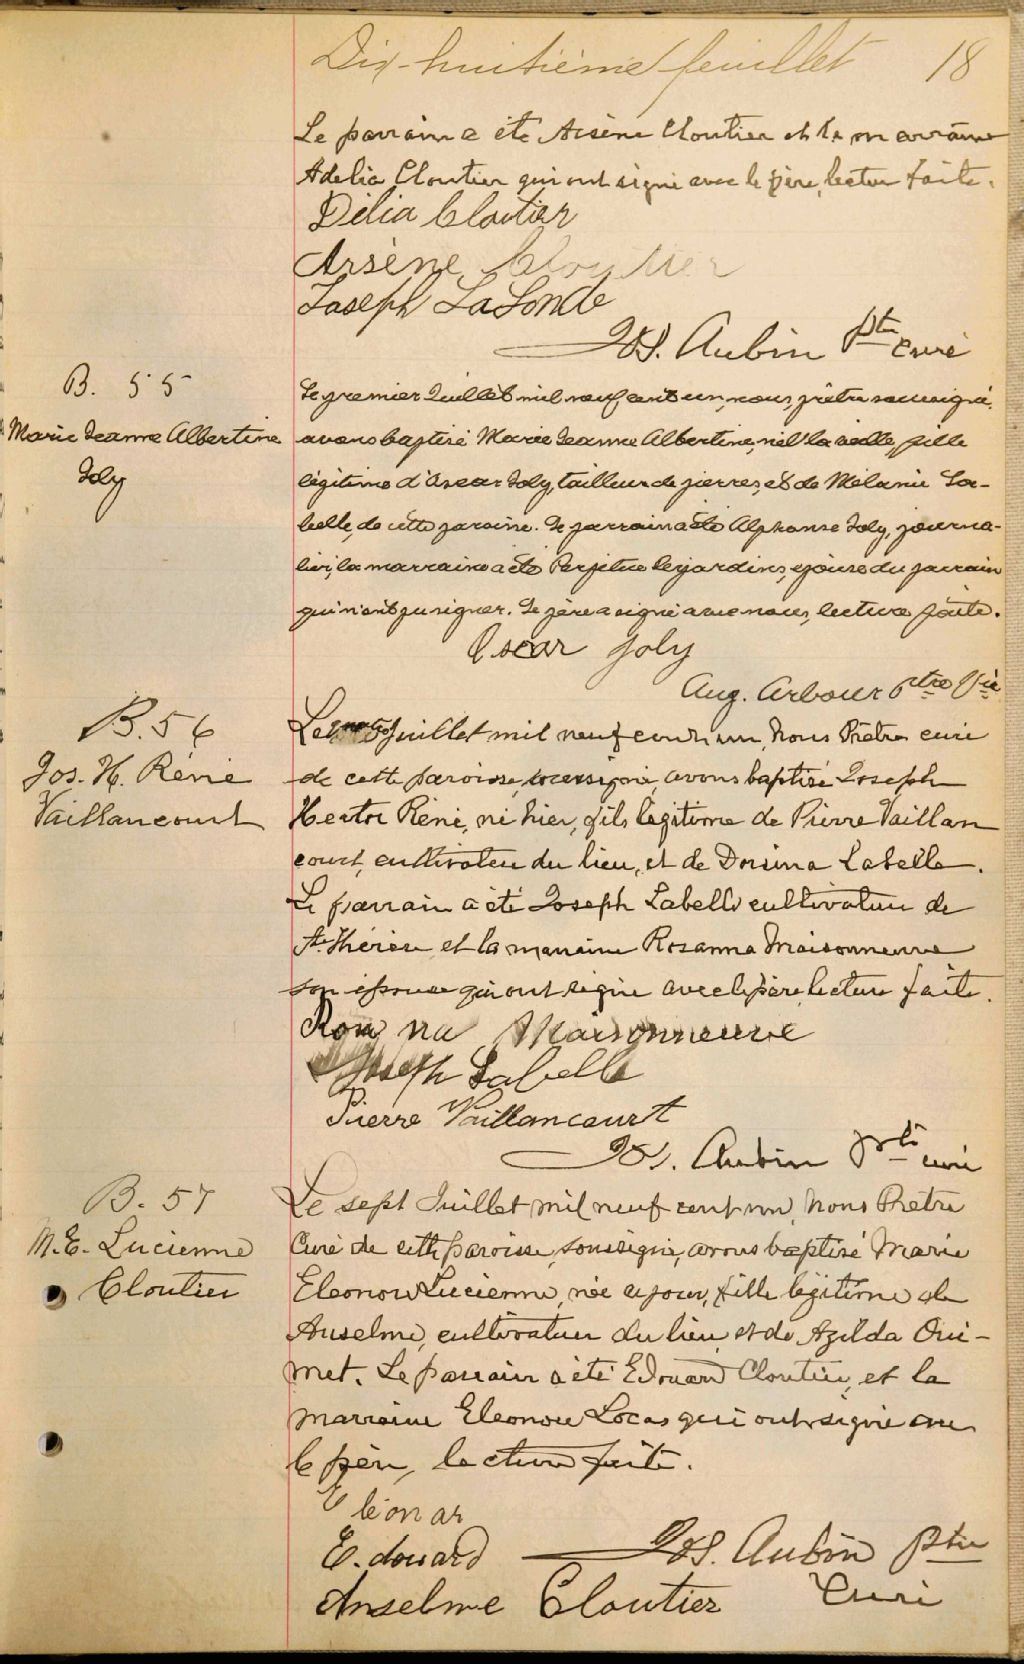 Dix-huitième feuillet 18
Le parrain a été Arsène Cloutier et la marraine
Adelia Cloutier qui ont signé avec le père, lecture faite.
Délia Cloutier
Arsène Cloutier
Joseph LaLonde
Jos. Aubin Ptre curé
B. 55
Marie Jeanne Albertine
Joly
Le premier Juillet mil neuf cent un, nous, prêtre soussigné,
avons baptisé Marie Jeanne Albertine, née la veille, fille
légitime d'Oscar Joly, tailleur de pierres, et de Mélanie La-
belle, de cette paroisse. Le parrain a été Alphonse Joly, journa-
lier, la marraine a été Perpétue Desjardins, épouse du parrain
qui n'ont pu signer. Le père a signé avec nous, lecture faite.
Oscar Joly
Aug. Arbour Ptre Vic
B. 56
Jos. H. Réné
Vaillancourt
Le Juillet mil neuf cent un, Nous Prêtre curé
de cette paroisse, soussigné, avons baptisé Joseph
Hector Réné, né hier, fils légitime de Pierre Vaillan
court, cultivateur du lieu, et de Dorsina Labelle.
Le parrain a été Joseph Labelle cultivateur de
Ste Thérèse et la marraine Rosanna Maisonneuve
son épouse qui ont signé avec le père, lecture faite.
Roza na Maisonneuve
Joseph Labelle
Pierre Vaillancourt
Jos. Aubin Ptre curé
B. 57
M. E. Lucienne
Cloutier
Le sept Juillet mil neuf cent un, Nous Prêtre
Curé de cette paroisse, soussigné, avons baptisé Marie
Eleonore Lucienne, née ce jour, fille légitime de
Anselme, cultivateur du lieu et de Azilda Oui-
met. Le parrain a été Edouard Cloutier, et la
marraine Eleonore Locas qui ont signé avec
le père, lecture faite.
Eléonar
Edouard Jos. Aubin Ptre
Anselme Cloutier Curé